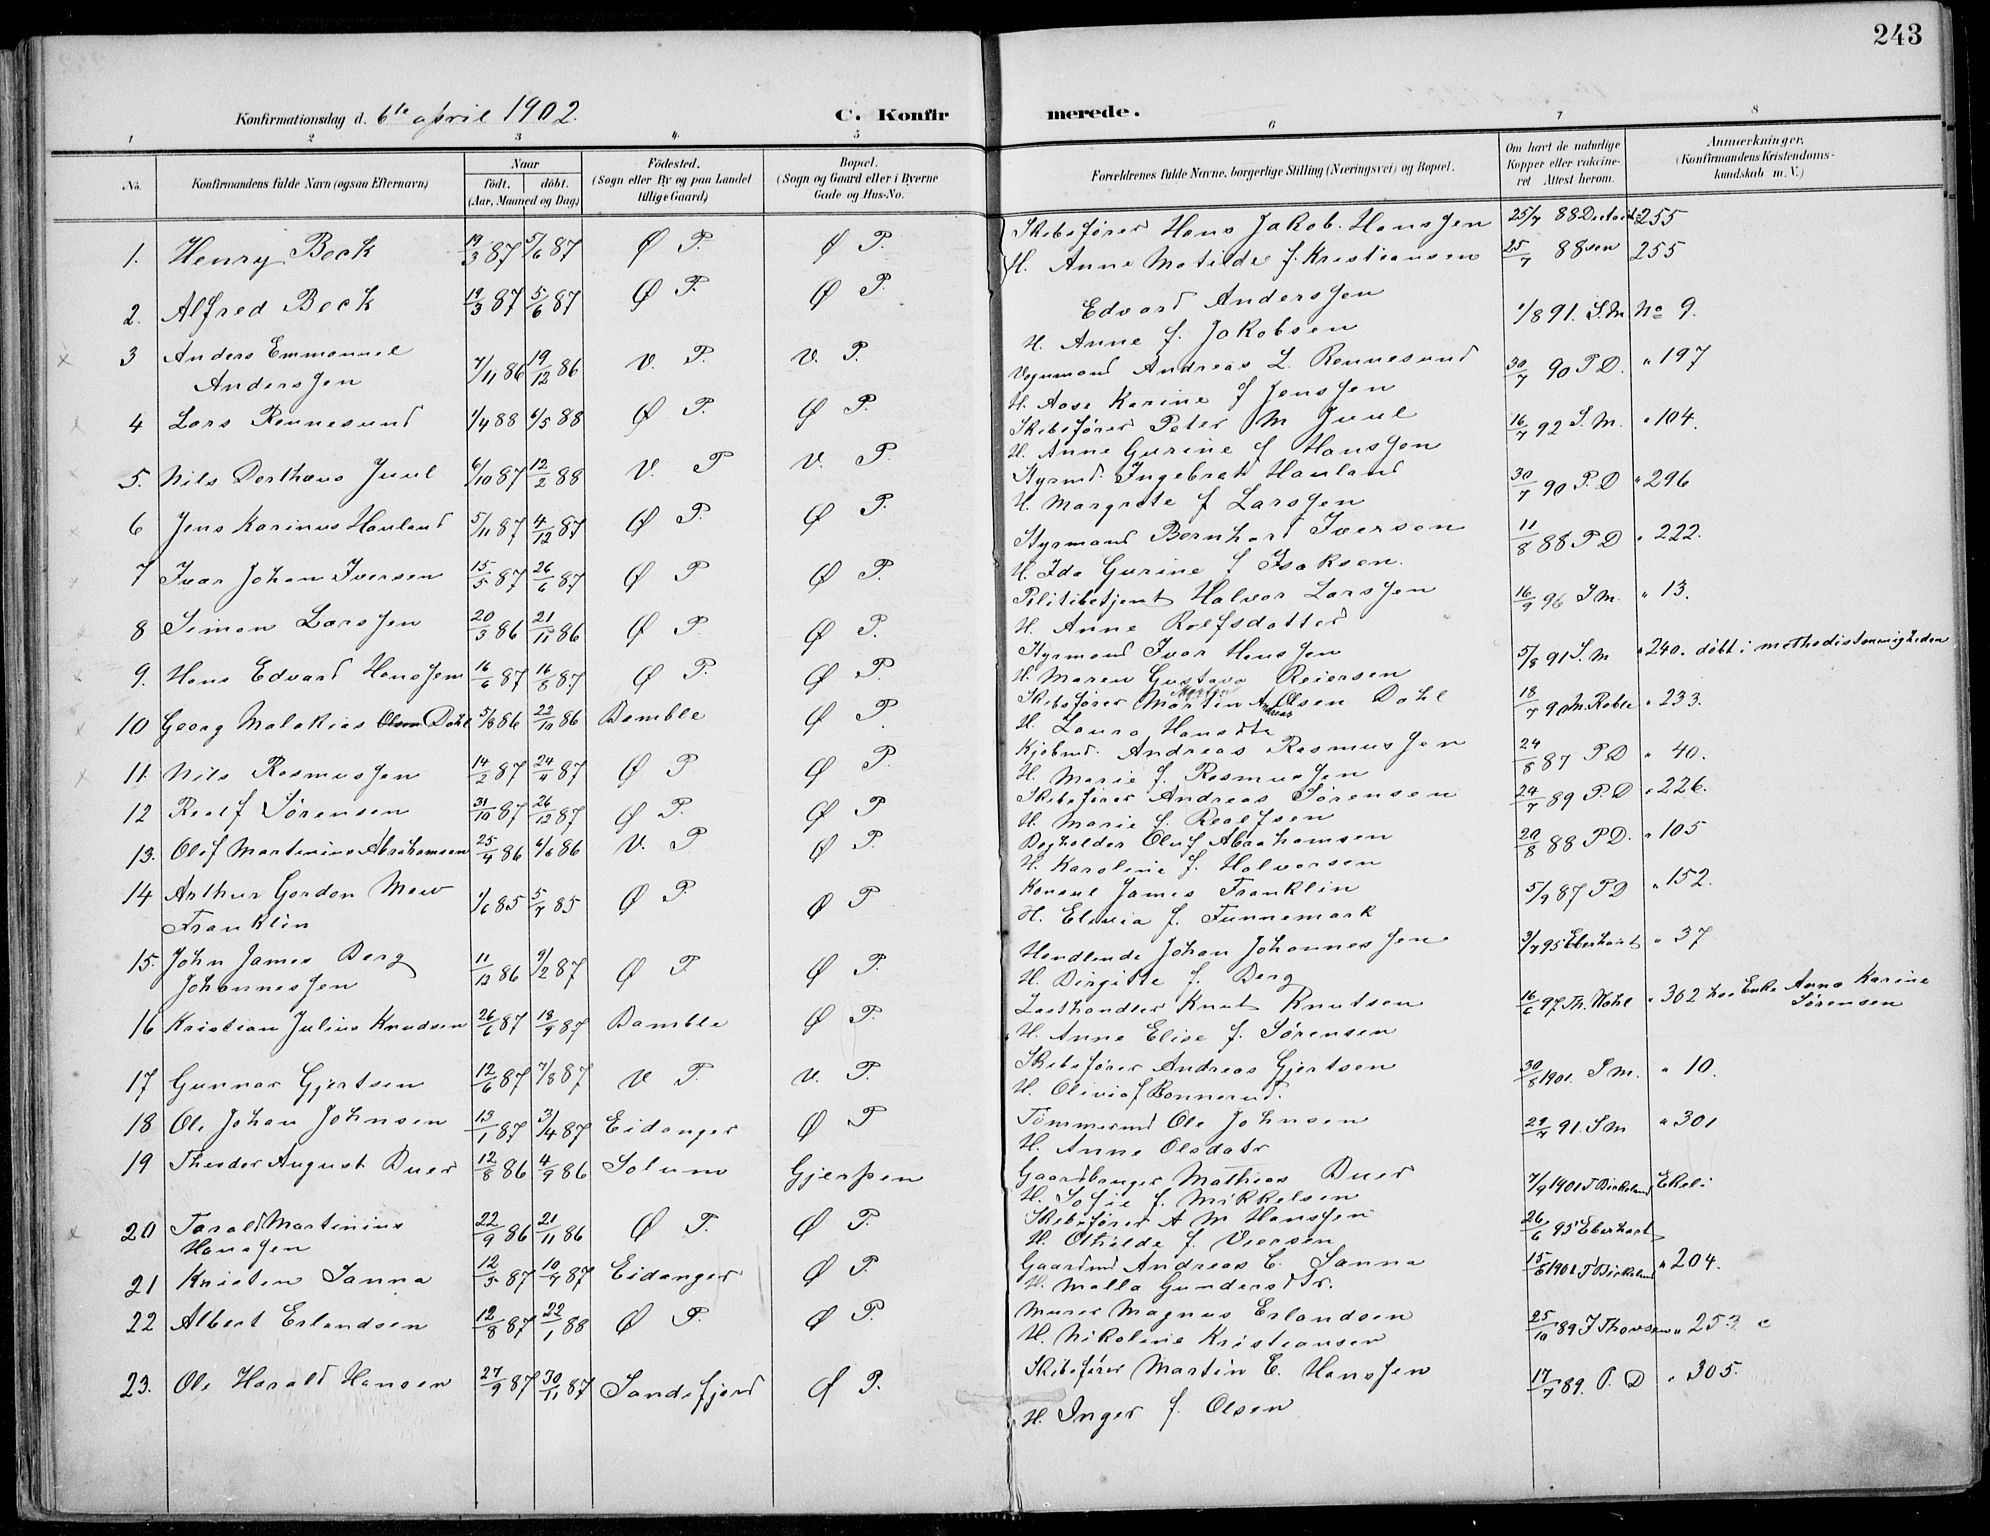 243
Konfirmationsdag d. 6te april 1902.
C. Konfirmerede.
1 2 3 4. 5 6 7 8
No.
Konfirmandens fulde Navn (ogsaa Efternavn)
Naar
født. døbt.
(Aar, Maaned og Dag)
Fødested.
(Sogn eller By og paa Landet
tillige Gaard)
Bopæl.
(Sogn og Gaard eller i Byerne
Gade og Hus-No.
Forældrenes fulde Navne, borgerlige Stilling (Næringsvei) og Bopæl.
Om havt de naturlige
Kopper eller vakcine-
ret Attest herom.
Anmærkninger.
(Konfirmandens Kristendoms-
kundskab m. V.)
1. Henry Beck 19/3 87 5/6 87 Ø P. Ø P. Skibsfører Hans Jakob Hanssen 25/7 88 255
H. Anne Matilde f. Kristiansen 25/7 88 255
2. Alfred Beck 19/3 87 5/6 87 Ø P. Ø P.
3 Anders Emmanuel Anderssen 7/11 86 19/12 86 V. P. V. P. Edvard Anderssen 1/8 91. S.M. No 9.
H. Anne f. Jakobsen
4 Lars Rennesund 1/4 88 6/5 88 Ø P. Ø P. Vognmand Andreas L. Rennesund 30/7 90 P.D. " 197
H. Aase Karine f Jenssen
5. Nils Dorthæus Juul 6/10 87 12/2 88 V. P V. P. Skibsfører Peter M Juul 16/7 92 S.M. " 104.
H. Anne Gurine f Hanssen
6 Jens Karinus Hauland 5/11 87 4/12 87 Ø P. Ø P. Styrmd. Ingebret Hauland 30/7 90 P.D " 296
H. Margrete f Larssen
7 Ivar Johan Iversen 15/5 87 26/6 87 Ø P Ø P. Styrmand Bernhard Iversen 11/8 88 P D " 222.
H. Ida Gurine f Isaksen.
8 Simon Larssen 20/3 86 21/11 86 Ø P. Ø P. Politibetjent Halvor Larssen 16/9 96 S M. " 13.
H. Anne Rolfsdatter
9. Hans Edvard Hanssen 16/6 87 16/8 87 Ø P. Ø P. Styrmand Ivar Hanssen 5/8 91 S. M " 240. døbt i methodistmenigheden
H. Maren Gustava Reiersen
10 Georg Malakias Olsen Dahl 5/8 86 22/10 86 Bamble Ø P. Skibsfører Martin Andreas Olsen Dahl 18/7 90 " 233.
H. Laura Hansdtr
11. Nils Rasmussen 14/2 87 24/4 87 Ø P Ø P. Kjøbmd. Andreas Rasmussen 24/8 87 P D " 40.
H. Marie f. Rasmussen
12 Realf Sørensen 31/10 87 26/12 87 Ø P. Ø P Skibsfører Andreas Sørensen 24/7 89 P.D " 226.
H. Marie f. Realfsen
13. Olaf Martinius Abrahamsen 25/4 86 6/6 86 V. P Ø P. Bogholder Oluf Abrahamsen 20/8 88 P D. " 105
H. Karoline f. Halvorsen
14 Arthur Gordon Mew Franklin 1/6 85 5/7 85 Ø P. Ø P Konsul James Franklin 5/9 87 P D " 152.
H. Elivia f. Tunnemark
15. John James Berg Johannessen 11/12 86 9/2 87 Ø P. Ø P. Handlende Johan Johannessen 3/7 95 Eberhart " 37
H. Birgitte f. Berg
16 Kristian Julius Knudsen 26/6 87 18/9 87 Bamble Ø P. Lasthandler Knut Knutsen 16/6 97 " 302 hos Enke Anna Karine Sørensen
H. Anne Elise f. Sørensen
17 Gunnar Gjertsen 12/6 87 7/8 87 V P. V. P. Skibsfører Andreas Gjertsen 30/8 1901. S M. " 10.
H. Olivia f Bonnerud.
18 Ole Johan Johnsen 13/1 87 3/4 87 Eidanger Ø P Tømmermd Ole Johnsen 29/7 91. S M " 301
H. Anne Olsdatr
19 Theodor August Buer 12/8 86 4/9 86 Solum Gjerpen Gaardbruger Mathias Buer 7/9 1901 T Birkeland Ekeli
H. Sofie f. Mikkelsen
20 Tarald Martinius Hanssen 22/9 86 21/11 86 Ø P. Ø P. Skibsfører A M Hanssen 26/6 95 Eberhart
H. Othilde f. Viersen
21 Kristen Sanna 12/5 87 10/7 87 Eidanger Ø P. Gaardmd Andreas C. Sanna 15/6 1901 T Birkeland " 204.
H. Malla Gundersdtr.
22 Albert Erlandsen 12/8 87 22/1 88 Ø P. Ø P. Murer Magnus Erlandsen 25/10 89 J Thorsen " 253 c
H. Nikoline Kristiansen
23. Ole Harald Hansen 27/9 87 30/11 87 Sandefjord Ø P. Skibsfører Martin E. Hanssen 17/7 89. P. D " 305.
H. Inger f. Olsen